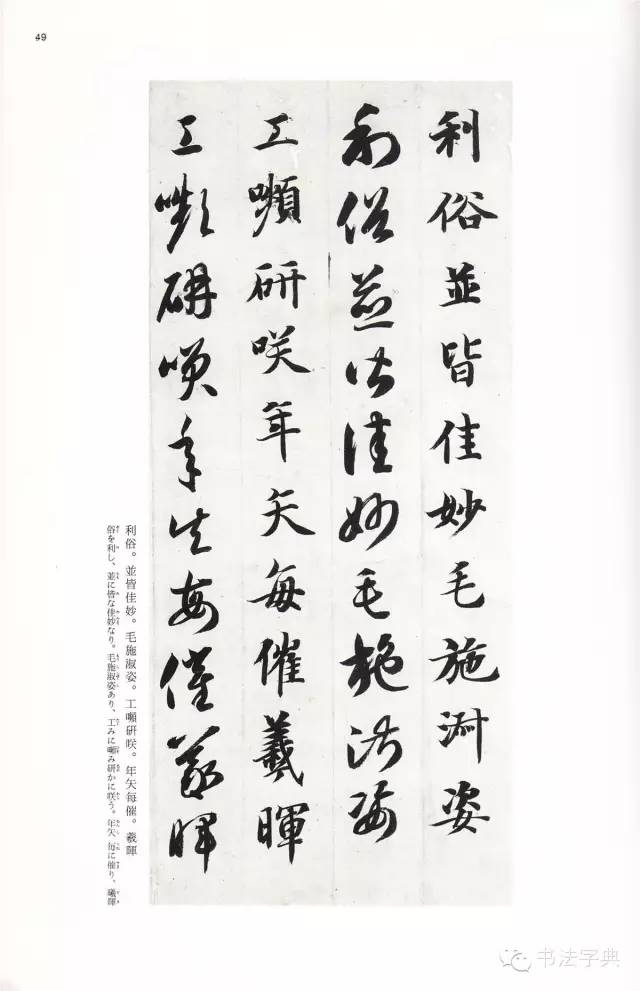 49
利俗並皆佳妙毛施淑姿
利俗並皆佳妙毛施淑姿
工嚬研咲年矢每催羲暉
工嚬研咲年矢每催羲暉
利俗。並皆佳妙。毛施淑姿。工嚬研咲。年矢每催。羲暉
俗を利し、並に皆な佳妙なり。毛施淑姿あり、工みに嚬み研かに咲う。年矢 每に催り、羲暉
书法字典